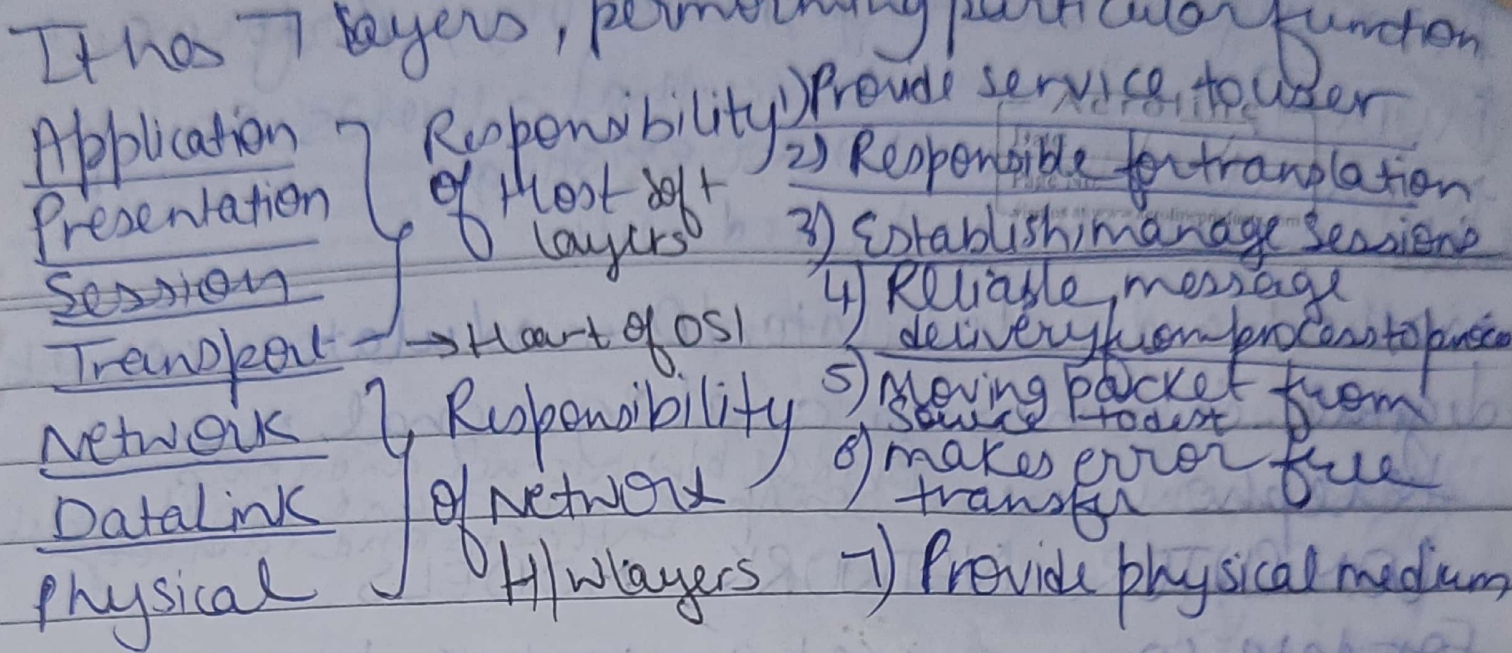 It has 7 layers, performing particular function
Application
Presentation
Session
Transport
Network
DataLink
Physical
Responsibility
of Host soft
layers
→ Heart of OSI
Responsibility
of Network
H/w layers
1) Provide service to user
2) Responsible for translation
3) Establish, manage sessions
4) Reliable message
delivery from process to process
5) Moving packet from
source to dest
6) makes error free
transfer
7) Provide physical medium